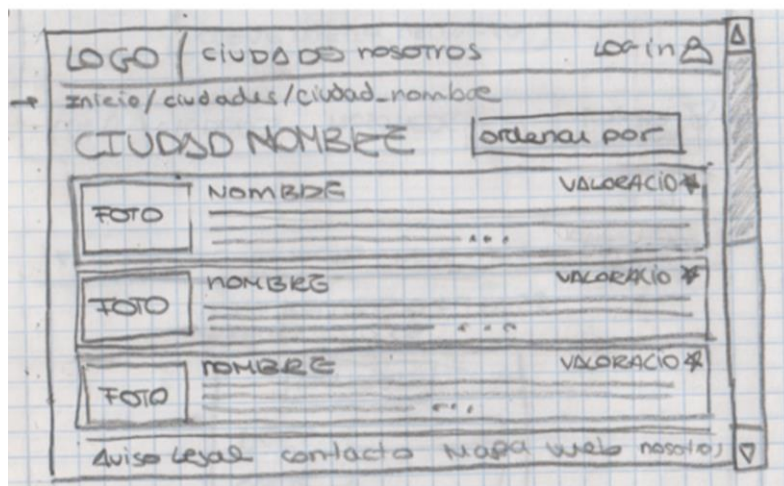 LOGO CIUDADO nosotros Log in
Inicio/ciudades/ciudad_nombre
CIUDAD NOMBRE ordenar por
NOMBRE VALORACIO
FOTO
...
NOMBRE VALORACIO
FOTO
...
NOMBRE VALORACIO
FOTO
...
Aviso Legal contacto Mapa web nosotros